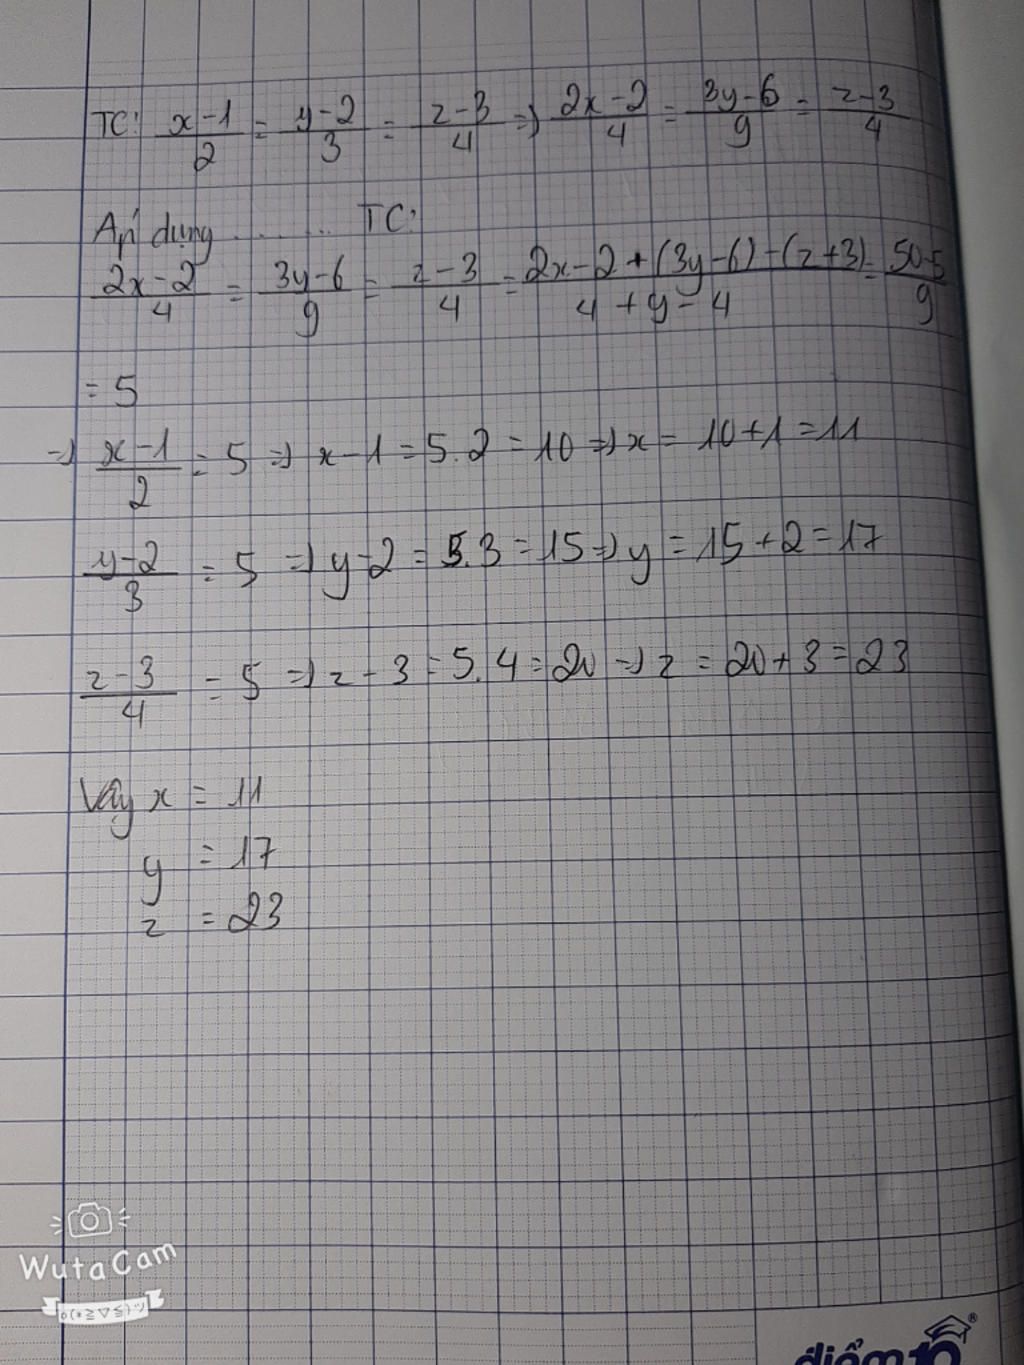 TC: x-1/2 = y-2/3 = z-3/4 => 2x-2/4 = 3y-6/9 = z-3/4
Áp dụng ........ TC:
2x-2/4 = 3y-6/9 = z-3/4 = 2x-2+(3y-6)-(z+3)/4+y-4 = 50-5/9
= 5
=> x-1/2 = 5 => x-1 = 5.2 = 10 => x = 10+1 = 11
y-2/3 = 5 => y-2 = 5.3 = 15 => y = 15+2 = 17
z-3/4 = 5 => z-3 = 5.4 = 20 => z = 20+3 = 23
Vậy x = 11
y = 17
z = 23
WutaCam
o(*≧▽≦)ツ
điểm10
®